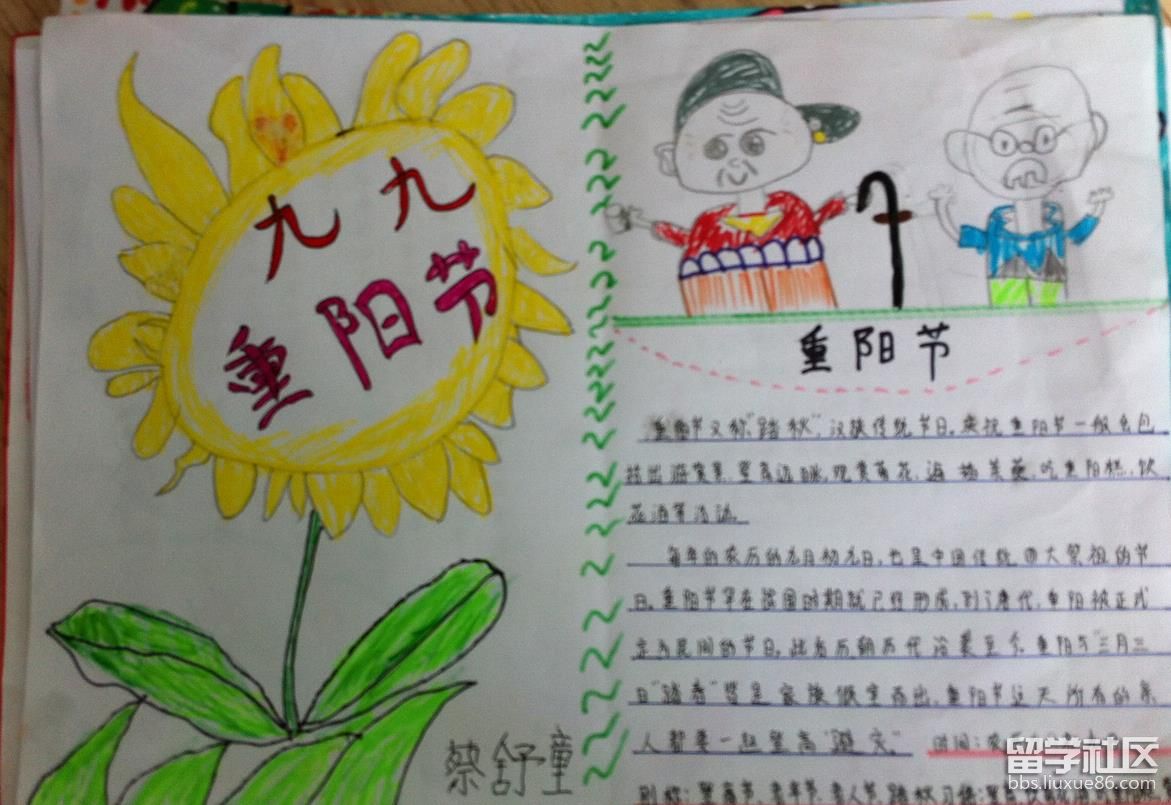 九九
重阳节
蔡舒童
重阳节
重阳节又称"踏秋",汉族传统节日。庆祝重阳节一般会包
括出游赏景、登高远眺、观赏菊花、遍插茱萸、吃重阳糕、饮
花酒等活动。
每年的农历的九月初九日,也是中国传统四大祭祖的节
日。重阳节早在战国时期就已经形成,到了唐代,重阳被正式
定为民间的节日,此后历朝历代沿袭至今。重阳与"三月三
日"踏春"皆是家族倾室而出,重阳节这天所有的亲
人都要一起登高"避灾"。 时间:农
别称:登高节、老年节、老人节、踏秋 习俗:
留学社区
bbs.liuxue86.com